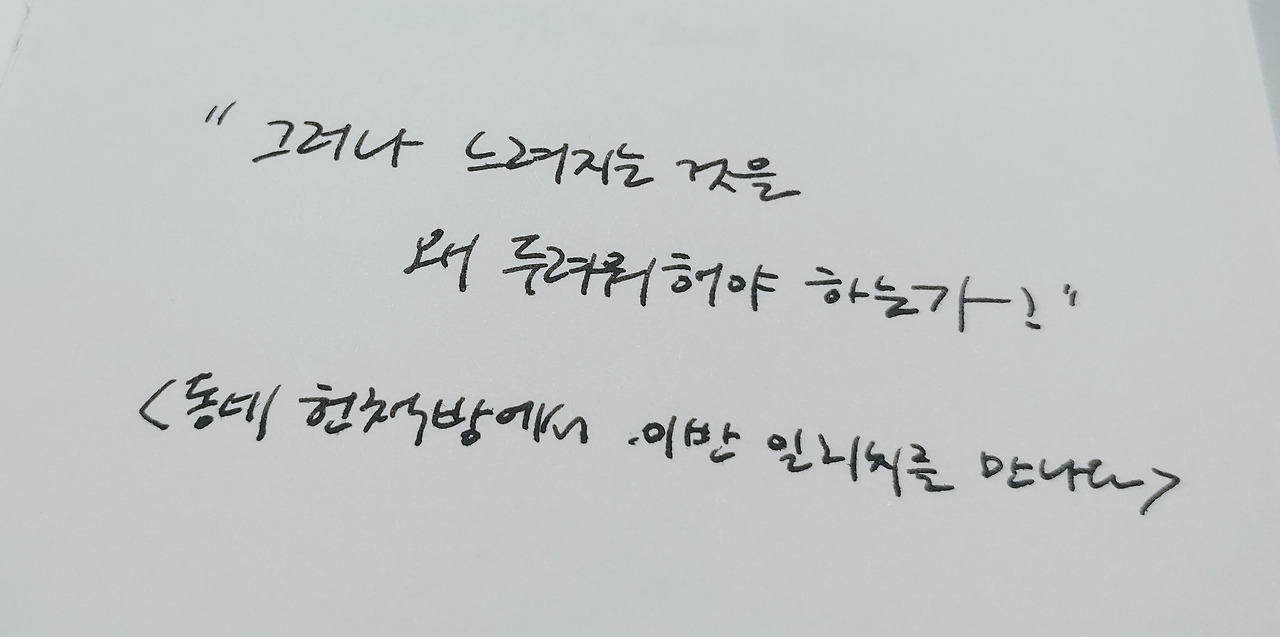 "그러나 느려지는 것을
왜 두려워해야 하는가!"
<동네 헌책방에서 이반 일리치를 만나다>